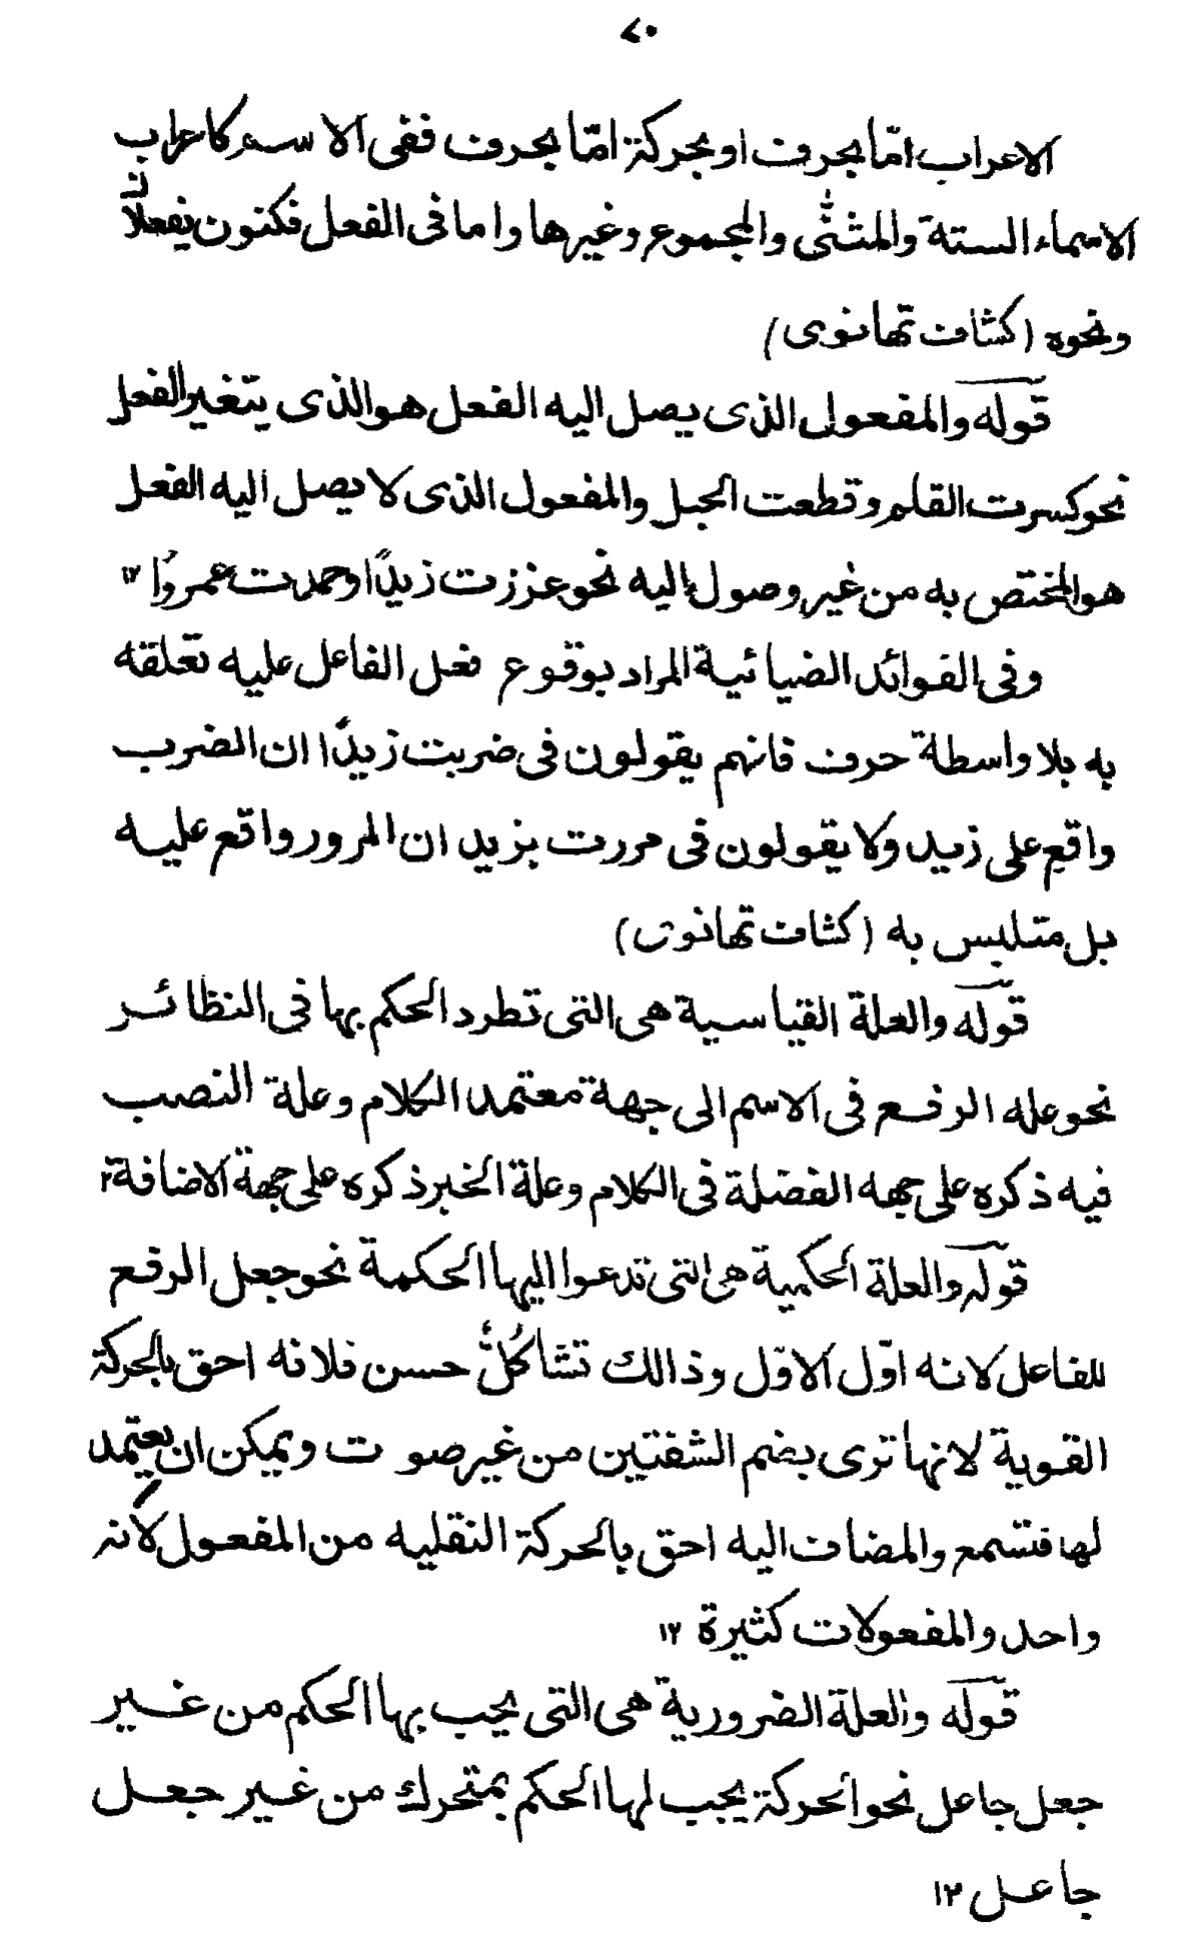 ۷۰
الاعراب امّا بحرف او بحركة امّا بحرف ففى الاسم كاعراب
الاسماء الستة والمثنّٰى والمجموع وغيرها واما فى الفعل فكنون يفعلان
ونحوه (كشاف تهانوى)
قوله والمفعول الذى يصل اليه الفعل هو الذى يتغير الفعل
نحو كسرت القلم وقطعت الحبل والمفعول الذى لا يصل اليه الفعل
هو المختص به من غير وصول اليه نحو عززت زيدًا وحمدت عمروًا ۱۲
وفى الفوائد الضيائية المراد بوقوع فعل الفاعل عليه تعلقه
به بلا واسطة حرف فانهم يقولون فى ضربت زيدًا ان الضرب
واقع على زيد ولا يقولون فى مررت بزيد ان المرور واقع عليه
بل متلبس به (كشاف تهانوى)
قوله والعلة القياسية هى التى تطرد الحكم بها فى النظائر
نحو عله الرفع فى الاسم الى جهة معتمد الكلام وعلة النصب
فيه ذكره على جهه الفضلة فى الكلام وعلة الخبر ذكره على جهة الاضافة
قوله والعلة الحكمية هى التى تدعوا اليها الحكمة نحو جعل الرفع
للفاعل لانه اوّل الاوّل وذالك تشاكُلٌ حسن فلانه احق بالحركة
القوية لانها ترى بضم الشفتين من غير صوت ويمكن ان يعتمد
لها فتسمع والمضاف اليه احق بالحركة النقليه من المفعول لانه
واحد والمفعولات كثيرة ۱۲
قوله والعلة الضرورية هى التى يجب بها الحكم من غير
جعل جاعل نحو الحركة يجب لها الحكم بمتحرك من غير جعل
جاعل ۱۲